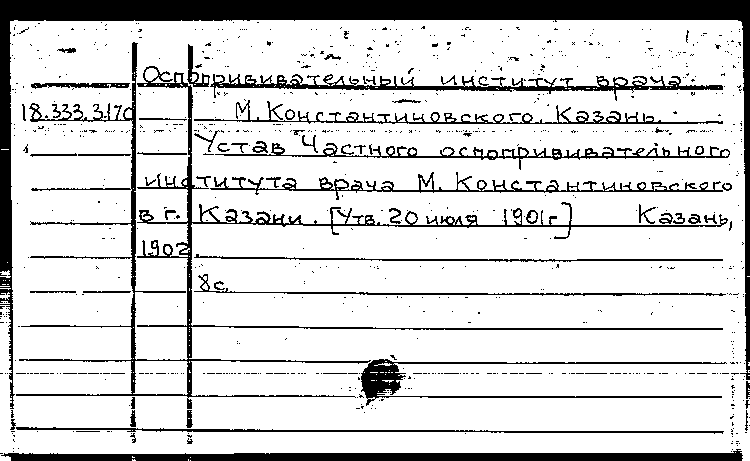 Оспопрививательный институт врача
18.333.317с М. Константиновского. Казань.
Устав Частного оспопрививательного
института врача М. Константиновского
в г. Казани. [Утв. 20 июля 1901г] Казань,
1902.
8с.